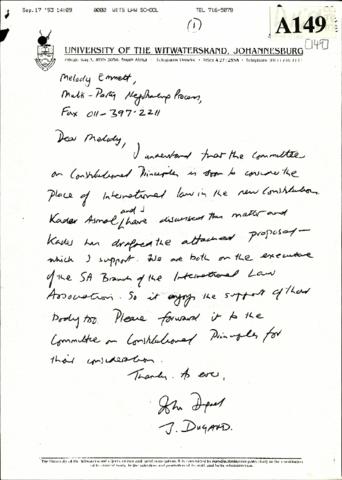 Sep.17 '93 14:09 0000 WITS LAW SCHOOL TEL 716-5078
(1)
A149
UNIVERSITY OF THE WITWATERSRAND, JOHANNESBURG
Melody Emmett,
Multi-Party Negotiating Process,
Fax 011-397-2211
Dear Melody,
I understand that the Committee
on Constitutional Principles is soon to consider the
place of International law in the new Constitution.
Kader Asmal and I have discussed this matter and
Kader has drafted the attached proposal -
which I support. We are both on the executive
of the SA Branch of the International Law
Association. So it enjoys the support of that
body too. Please forward it to the
Committee on Constitutional Principles for
their consideration.
Thanks. As ever,
John Dugard
J. DUGARD.